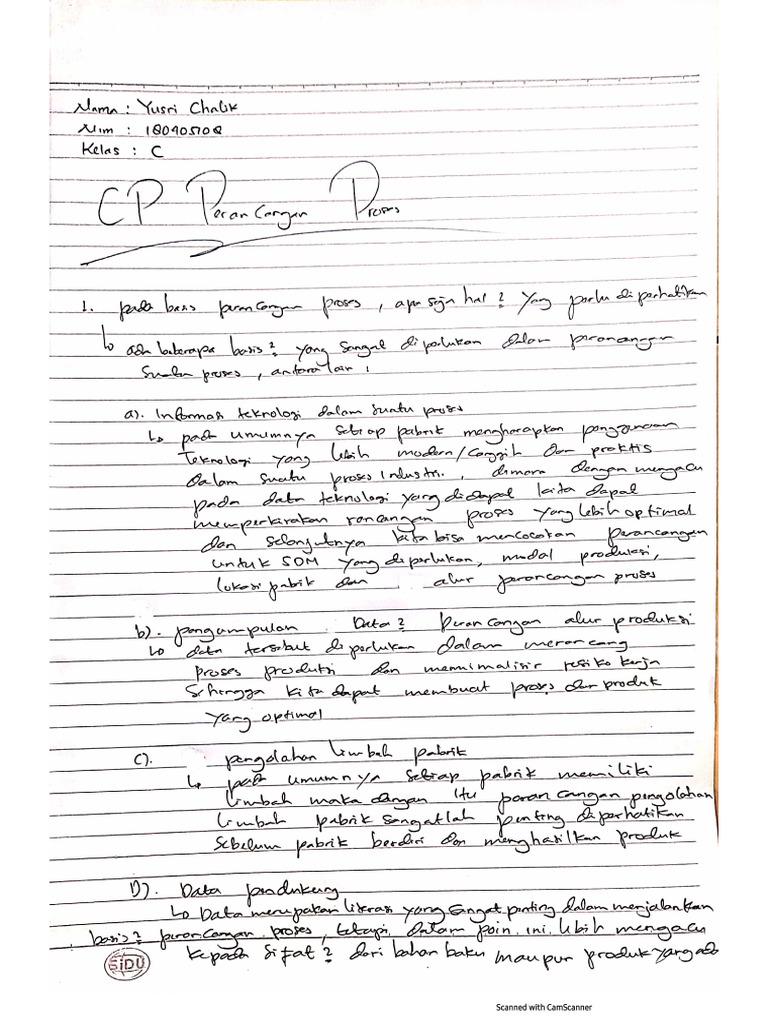 Nama : Yusri Chalik
Nim : 180405108
Kelas : C
CP Perancangan Proses
1. pada basis perancangan proses, apa saja hal2 yang perlu diperhatikan
↳ ada beberapa basis2 yang sangat diperlukan dalam perancangan
suatu proses, antara lain :
a). Informasi teknologi dalam suatu proses
↳ pada umumnya setiap pabrik mengharapkan penggunaan
teknologi yang lebih modern/canggih dan praktis
dalam suatu proses industri, dimana dengan mengacu
pada data teknologi yang didapat kita dapat
memperkirakan rancangan proses yang lebih optimal
dan selanjutnya kita bisa mencocokan perancangan
untuk SDM yang diperlukan, modal produksi,
lokasi pabrik dan alur perancangan proses
b). pengumpulan Data2 perancangan alur produksi
↳ data tersebut diperlukan dalam merancang
proses produksi dan meminimalisir resiko kerja
Sehingga kita dapat membuat proses dan produk
yang optimal
C). pengolahan limbah pabrik
↳ pada umumnya setiap pabrik memiliki
limbah maka dengan itu perancangan pengolahan
limbah pabrik sangatlah penting diperhatikan
sebelum pabrik berdiri dan menghasilkan produk
D). Data pendukung
↳ Data merupakan literasi yang sangat penting dalam menjalankan
basis2 perancangan proses, tetapi dalam poin ini lebih mengacu
kepada sifat2 dari bahan baku maupun produk yang ada
SiDU
Scanned with CamScanner